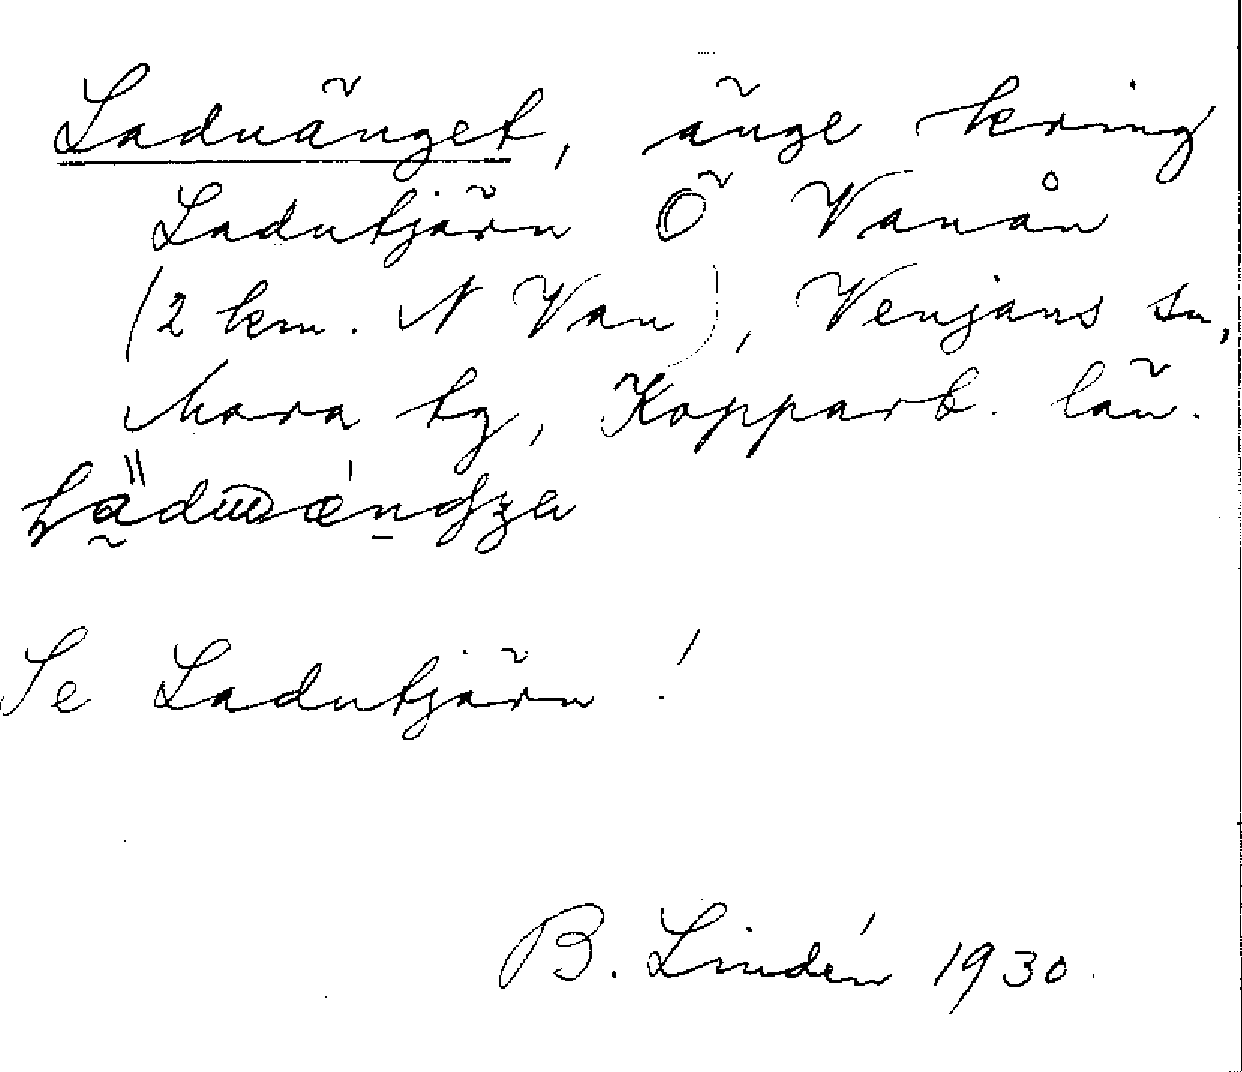 Laduänget, änge kring
Ladutjärn Ö Vanån
(2 km. N Van), Venjans sn,
Mora tg, Kopparb. län.
Se Ladutjärn!
B. Lindén 1930.